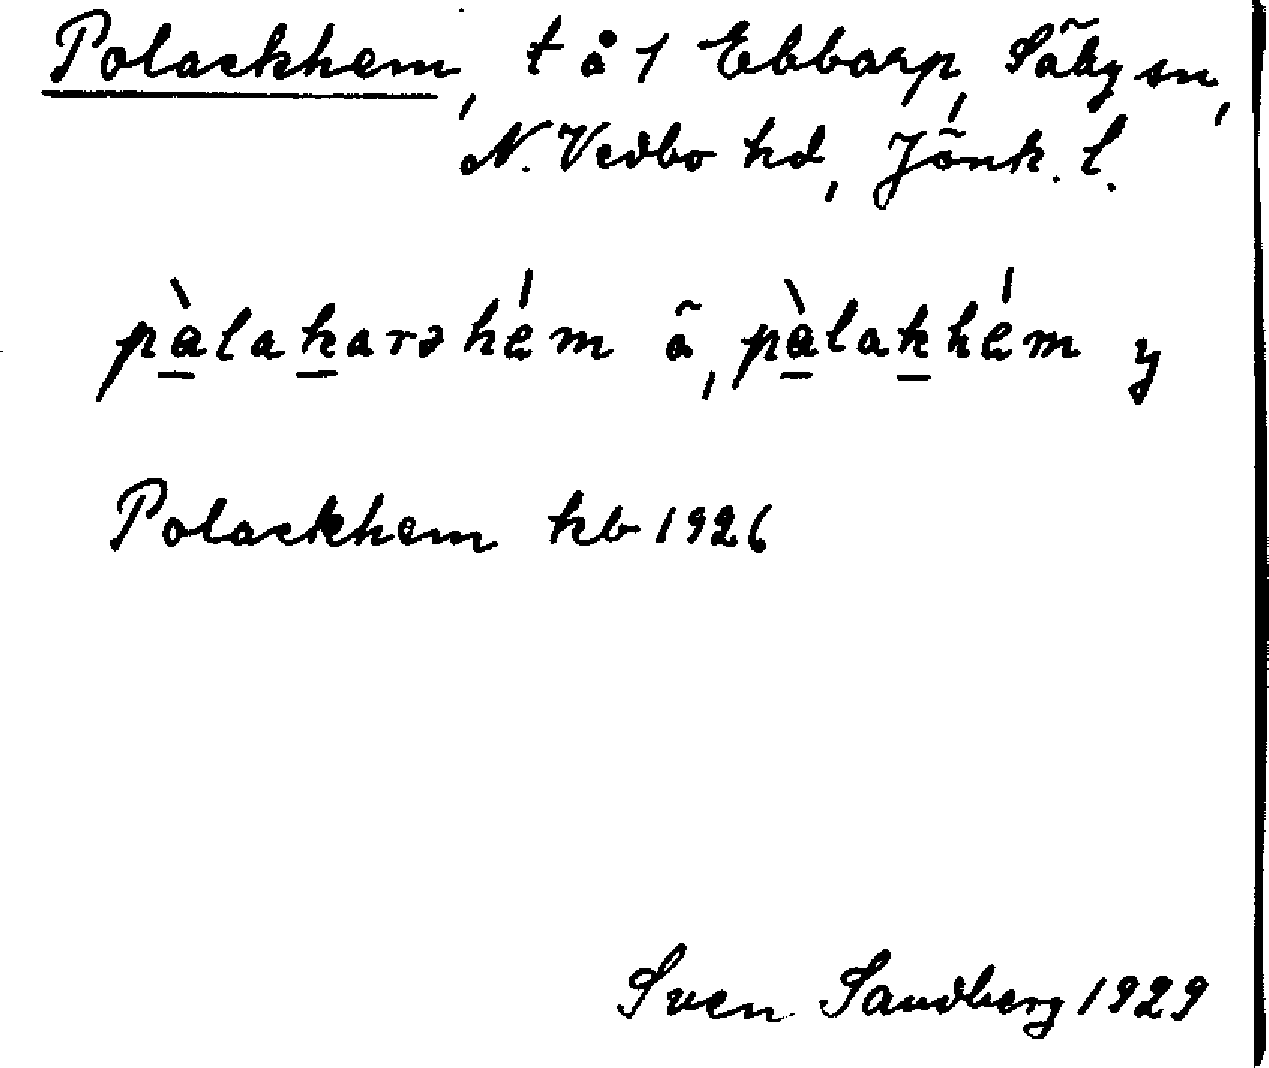 Polackhem, t å 1 Ebbarp, Säby sn,
N. Vedbo hd, Jönk. l.
pàlakarshém ä, pàlakhém y
Polackhem kb 1926
Sven Sandberg 1929